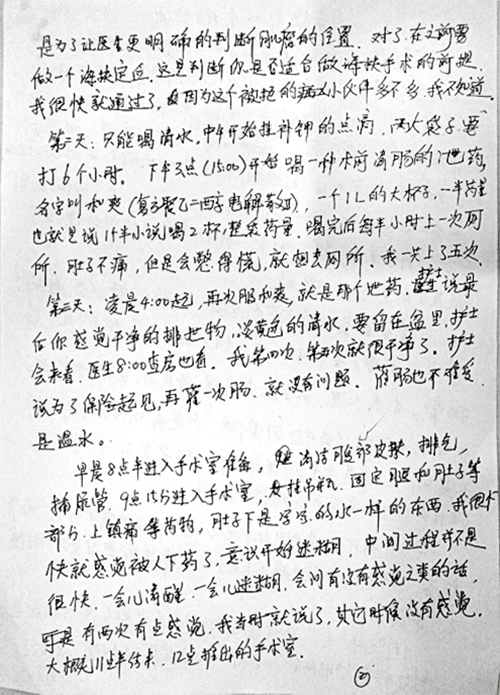 是为了让医生更明确的判断肌瘤的位置。对了，在之前要
做一个海扶定位。这是判断你是否适合做海扶手术的前提。
我很快就通过了，因为这个被拒的病友小伙伴多不多，我不知道。
第二天：只能喝清水，中午开始挂补钾的点滴，两大袋子，要
打6个小时。下午3点（15:00）开始喝一种术前清肠的泄药，
名字叫和爽（复方聚乙二醇电解散Ⅱ），一个1L的大杯子，一半药量
也就是说1个半小说喝2杯，整袋药量，喝完后每半小时上一次厕
所，肚子不痛，但是会憋得慌，就想去厕所。我一共上了五次。
第三天：凌晨4:00起，再次服和爽，就是那个泄药，护士说最
后你感觉干净的排泄物，淡黄色的清水，要留在盆里，护士
会来看，医生8:00查房也看。我第四次、第五次就很干净了。护士
说为了保险起见，再灌一次肠，就没有问题。灌肠也不难受，
是温水。
早晨8点半进入手术室准备，清洁腹部皮肤，排气，
插尿管。9点15分进入手术室，固定腿和肚子等
部分，上镇痛等药物，肚子下是字字的水一样的东西，我很
快就感觉被人下药了，意识开始迷糊，中间过程并不是
很快，一会儿清醒，一会儿迷糊，会问有没有感觉之类的话，
可是有两次有点感觉，我当时就说了，其它时候没有感觉。
大概是11点半结束，12点推出的手术室。
②